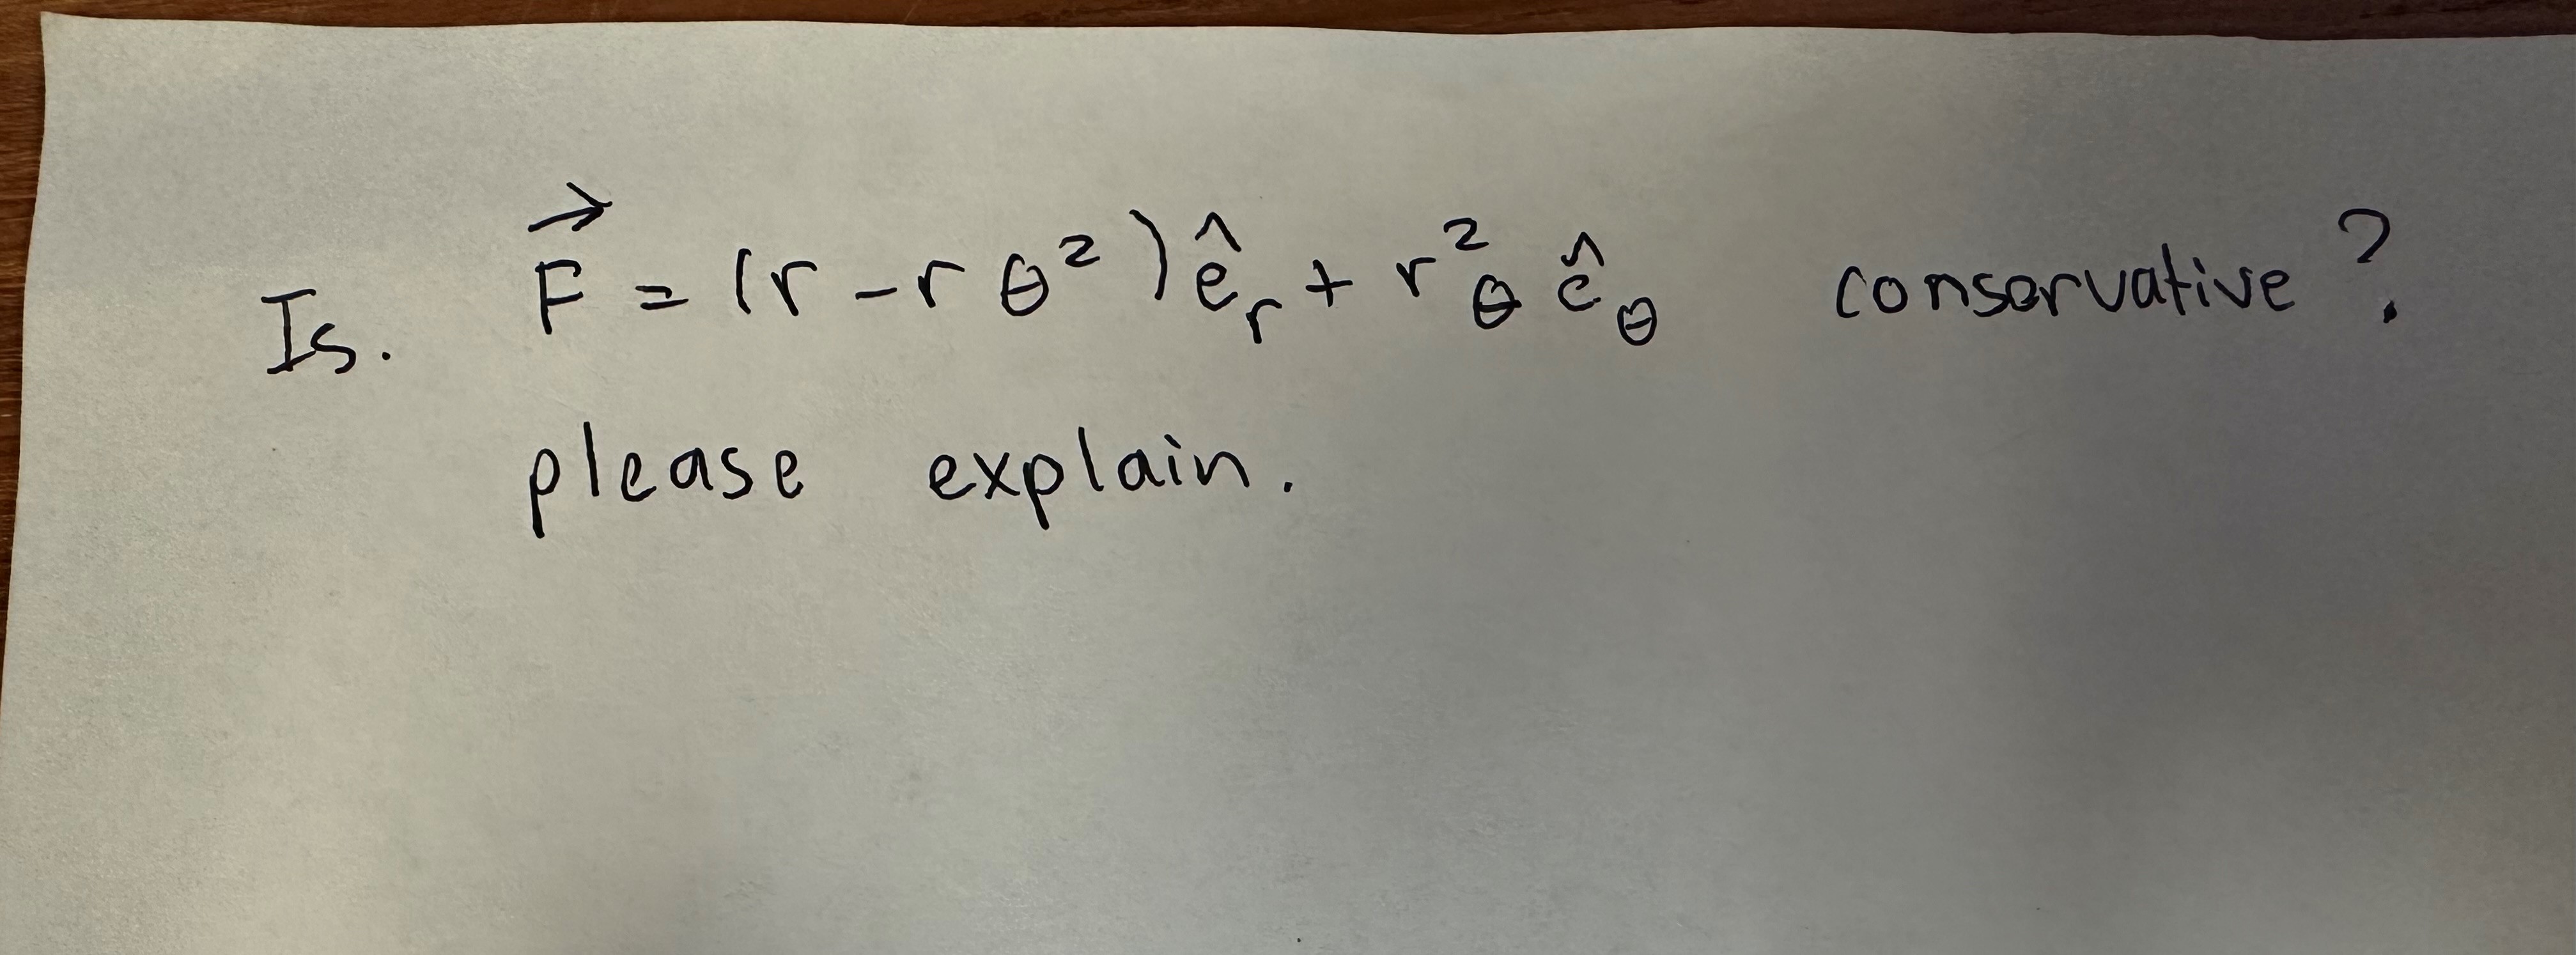 Is. \vec{F} = (r - r θ²) ê_r + r² θ ê_θ conservative?
please explain.